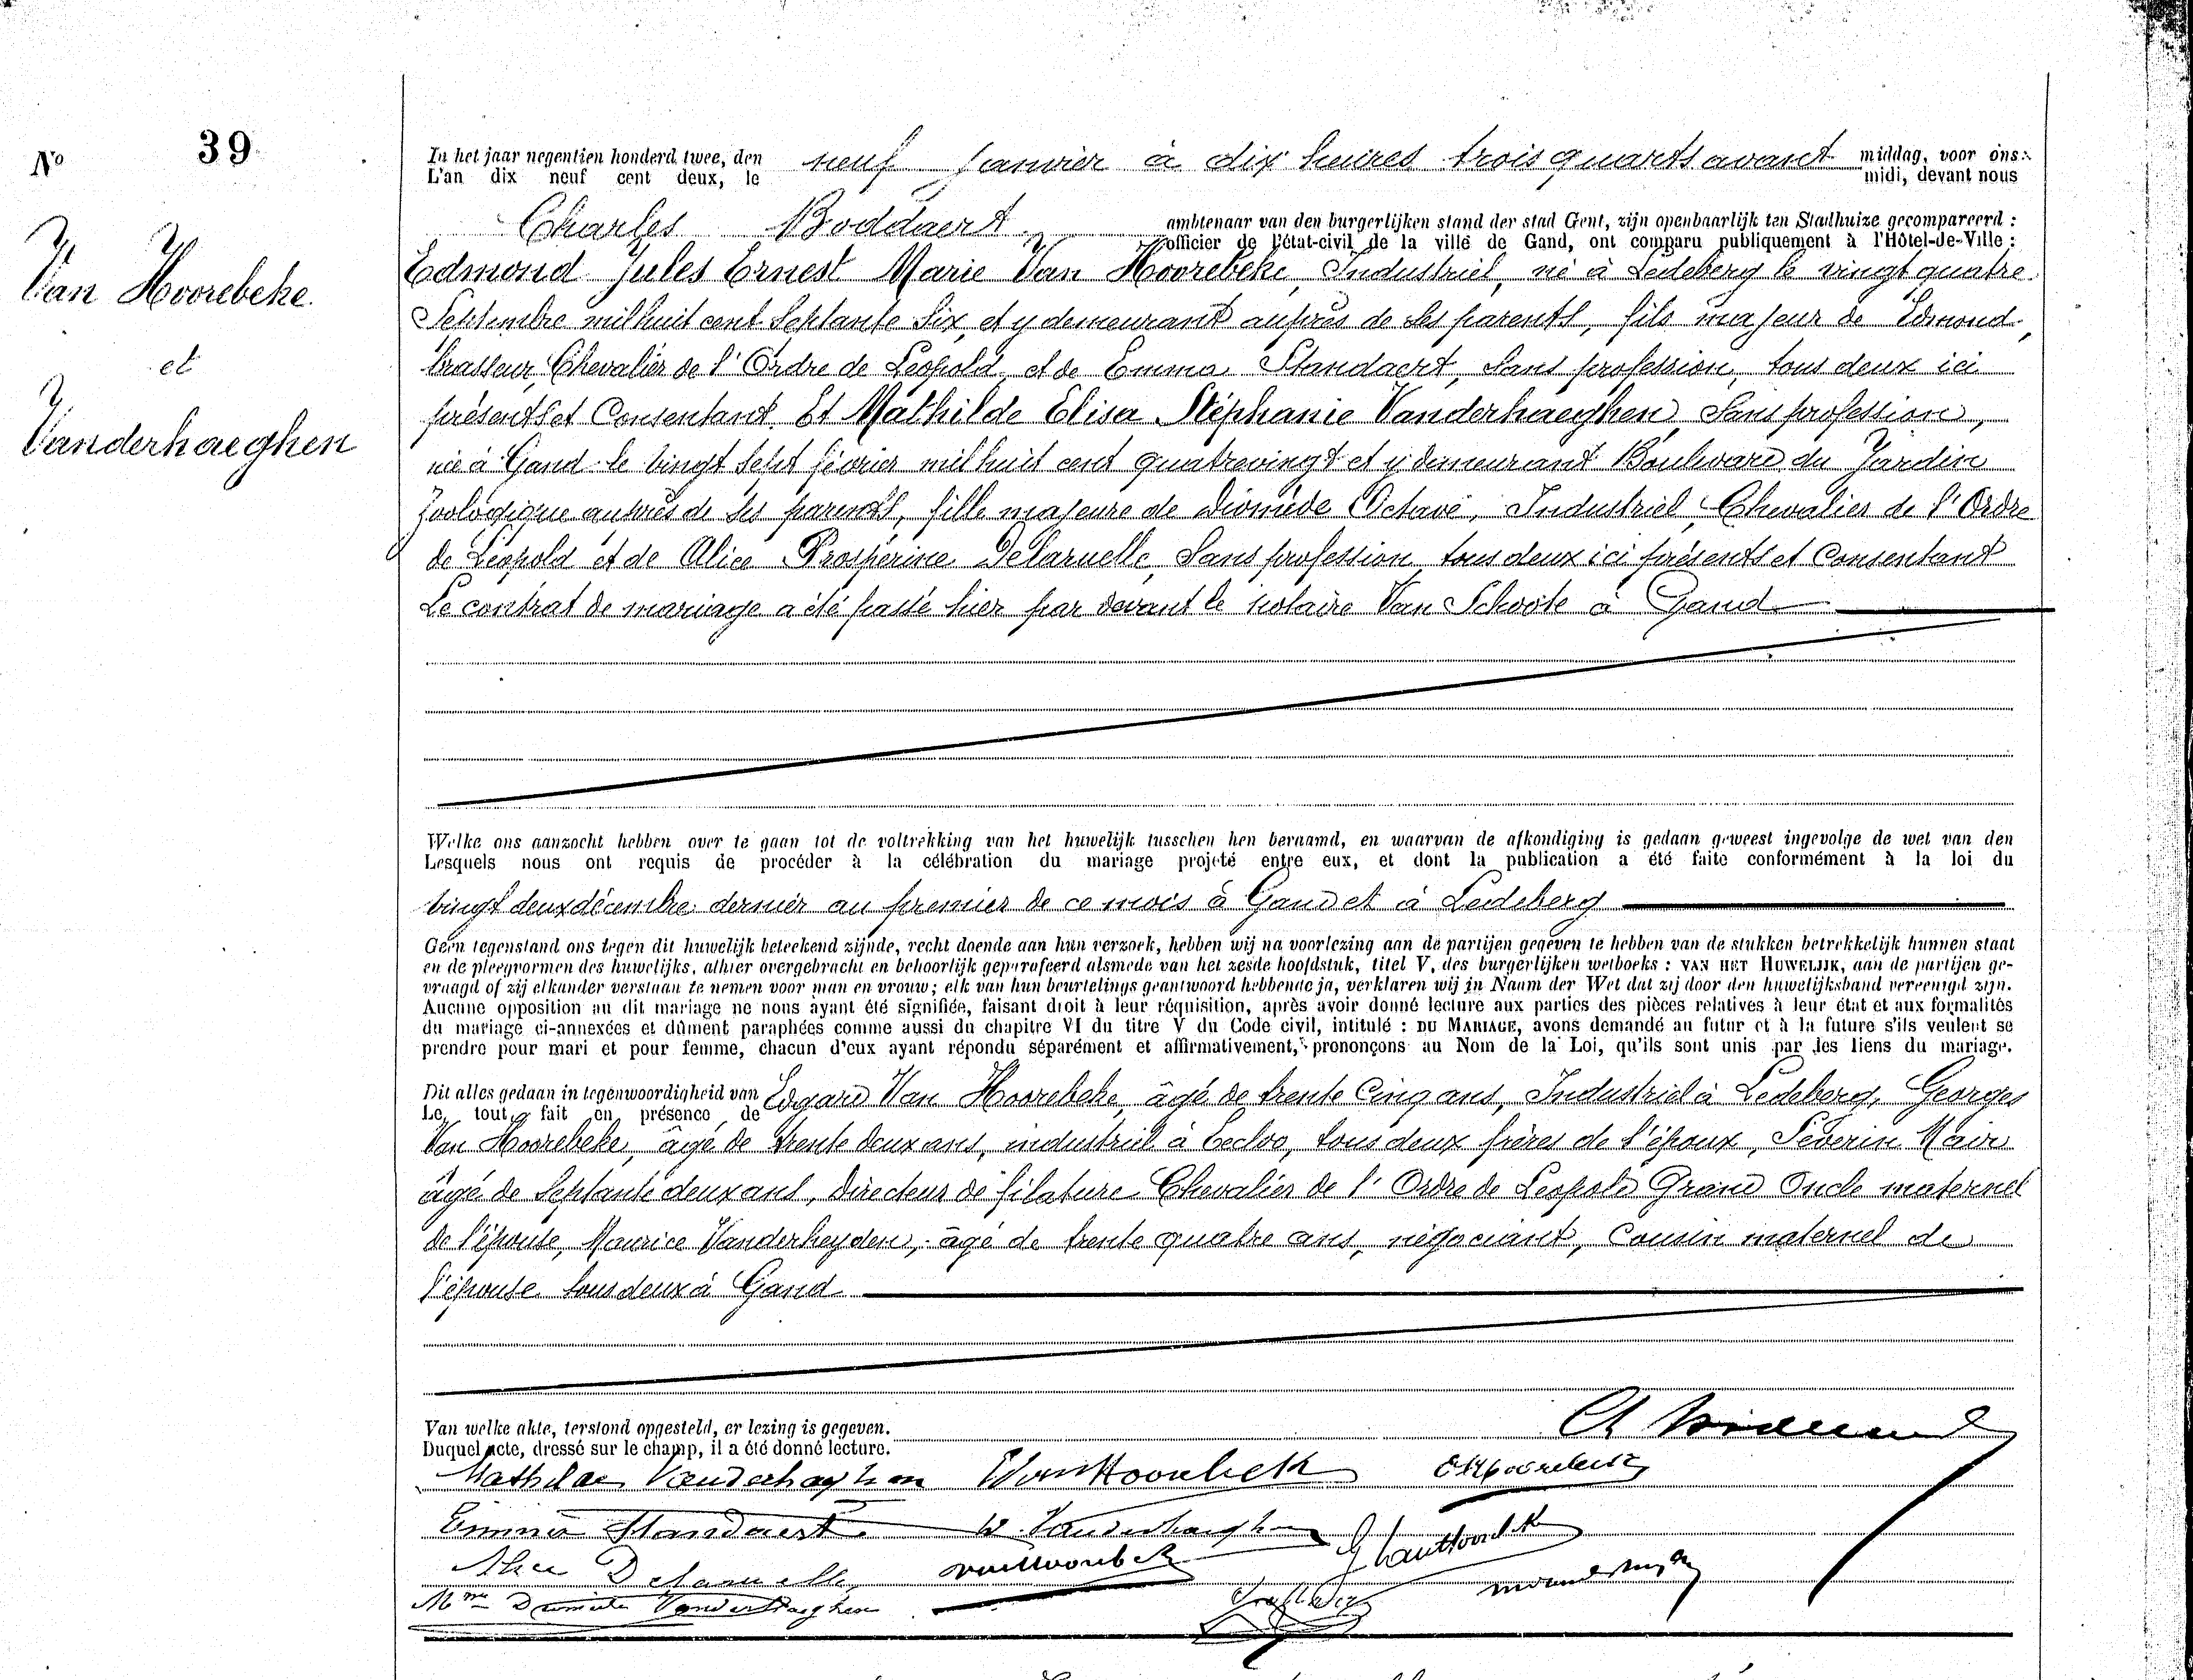 No 39
Van Hoorebeke
et
Vanderhaeghen
In het jaar negentien honderd twee, den
L'an dix neuf cent deux, le
neuf Janvier à dix heures trois quarts avant
middag, voor ons
midi, devant nous
Charles Boddaert
ambtenaar van den burgerlijken stand der stad Gent, zijn openbaarlijk ten Stadhuize gecompareerd :
officier de l'état-civil de la ville de Gand, ont comparu publiquement à l'Hôtel-de-Ville :
Edmond Jules Ernest Marie Van Hoorebeke, Industriel, né à Ledeberg le vingt quatre
Septembre mil huit cent Septante Six, et y demeurant auprès de ses parents, fils majeur de Edmond,
brasseur, Chevalier de l'Ordre de Léopold, et de Emma Standaert, Sans profession, tous deux ici
présents et Consentant. Et Mathilde Elisa Stéphanie Vanderhaeghen, Sans profession,
née à Gand le vingt Sept février mil huit cent quatrevingt et y demeurant Boulevard du Jardin
Zoologique auprès de ses parents, fille majeure de Diomède Octave, Industriel, Chevalier de l'Ordre
de Léopold et de Alice Prospérine Delaruelle, Sans profession, tous deux ici présents et Consentant
Le contrat de mariage a été passé hier par devant le notaire Van Schoote à Gand
Welke ons aanzocht hebben over te gaan tot de voltrekking van het huwelijk tusschen hen beraamd, en waarvan de afkondiging is gedaan geweest ingevolge de wet van den
Lesquels nous ont requis de procéder à la célébration du mariage projeté entre eux, et dont la publication a été faite conformément à la loi du
vingt deux décembre dernier au premier de ce mois à Gand et à Ledeberg
Geen tegenstand ons tegen dit huwelijk beteekend zijnde, recht doende aan hun verzoek, hebben wij na voorlezing aan de partijen gegeven te hebben van de stukken betrekkelijk hunnen staat
en de pleegvormen des huwelijks, alhier overgebracht en behoorlijk geparafeerd alsmede van het zesde hoofdstuk, titel V, des burgerlijken wetboeks : VAN HET HUWELIJK, aan de partijen ge-
vraagd of zij elkander verstaan te nemen voor man en vrouw ; elk van hun beurtelings geantwoord hebbende ja, verklaren wij in Naam der Wet dat zij door den huwelijksband vereenigd zijn.
Aucune opposition au dit mariage ne nous ayant été signifiée, faisant droit à leur réquisition, après avoir donné lecture aux parties des pièces relatives à leur état et aux formalités
du mariage ci-annexées et dûment paraphées comme aussi du chapitre VI du titre V du Code civil, intitulé : DU MARIAGE, avons demandé au futur et à la future s'ils veulent se
prendre pour mari et pour femme, chacun d'eux ayant répondu séparément et affirmativement, prononçons au Nom de la Loi, qu'ils sont unis par les liens du mariage.
Dit alles gedaan in tegenwoordigheid van
Le tout fait en présence de
Edgard Van Hoorebeke, âgé de trente Cinq ans, Industriel à Ledeberg, Georges
Van Hoorebeke, âgé de trente deux ans, industriel à Eecloo, tous deux frères de l'époux, Séverin Mair
âgé de Septante deux ans, Directeur de filature Chevalier de l'Ordre de Léopold Grand Oncle maternel
de l'épouse, Maurice Vanderheyden, âgé de trente quatre ans, négociant, Cousin maternel de
l'épouse tous deux à Gand
Van welke akte, terstond opgesteld, er lezing is gegeven.
Duquel acte, dressé sur le champ, il a été donné lecture.
Mathilde Vanderhaeghen EVanHoorebeke
Emma Standaert Vanderhaeghen G VanHoorebeke
Alice Delaruelle VanHoorebeke
Mme Diomède Vanderhaeghen